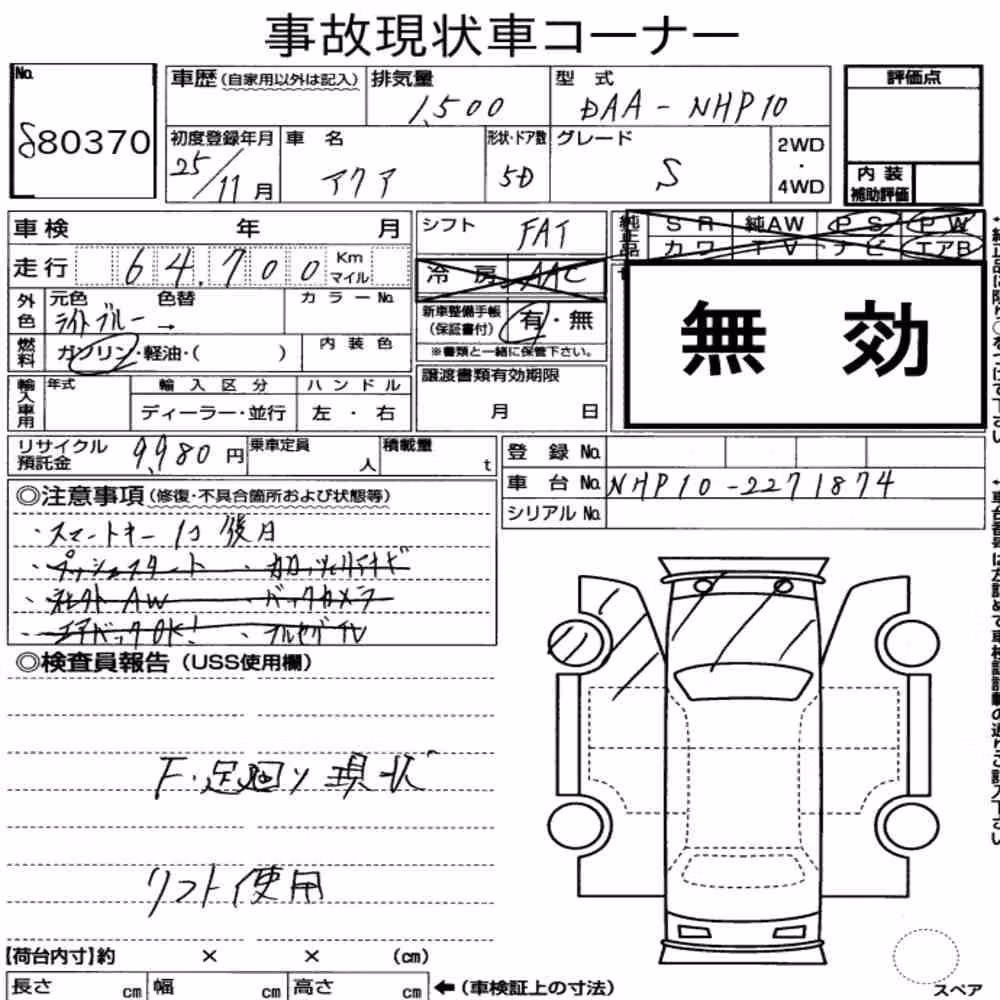 事故現状車コーナー
No.
80370
車歴(自家用以外は記入) 排気量 1,500 型式 DAA-NHP10
評価点
初度登録年月 25/11月 車名 アクア 形状・ドア数 5D グレード S 2WD・4WD
内装補助評価
車検 年 月
シフト FAT
純正品 SR 純AW PS PW
カワ TV ナビ エアB
走行 64,700 Km マイル
冷房 AAC
外色 元色 ライトブルー → 色替 カラーNo.
新車整備手帳(保証書付) 有・無
※書類と一緒に保管下さい。
無効
燃料 ガソリン・軽油・( ) 内装色
譲渡書類有効期限
月 日
輸入車用 年式 輸入区分 ハンドル
ディーラー・並行 左・右
リサイクル預託金 9,980円 乗車定員 人 積載量 t
登録No.
車台No. NHP10-2271874
シリアルNo.
◎注意事項(修復・不具合箇所および状態等)
・スマートキー 1コ 後日
・プッシュスタート
AW ・バックカメラ
・エアバックOK! ・フルセグTV
◎検査員報告(USS使用欄)
F・足廻り 現状
リフト使用
【荷台内寸】約 × × (cm)
長さ cm 幅 cm 高さ cm ←(車検証上の寸法)
スペア